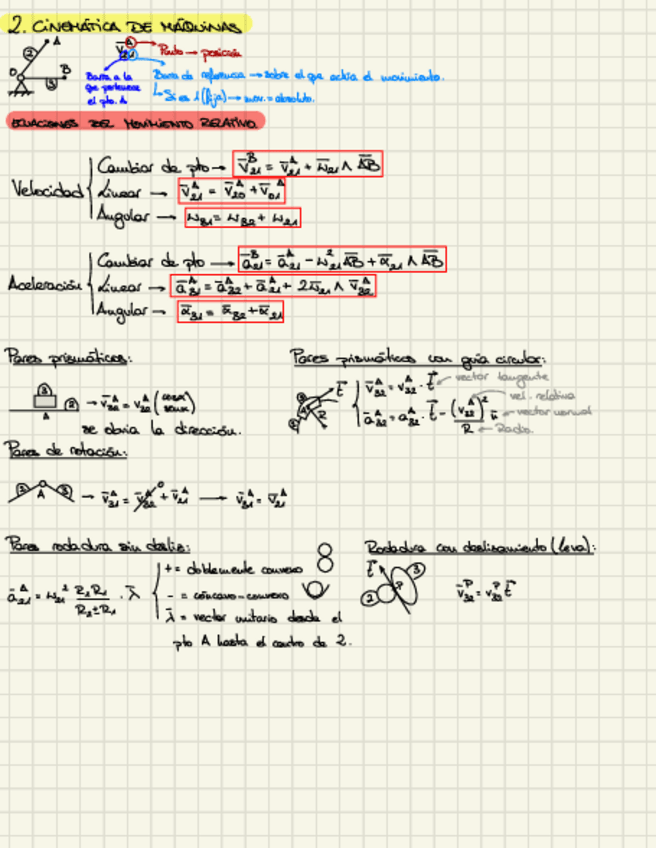 2. CINEMÁTICA DE MÁQUINAS
Punto → posición
Barra a la que pertenece el pto. A
Barra de referencia → sobre el que actúa el movimiento.
Si es 1 (fija) → mov. = absoluto.
ECUACIONES DEL MOVIMIENTO RELATIVO
Velocidad
Cambiar de pto → V̄ᴮ₂₁ = V̄ᴬ₂₁ + ω̄₂₁ ∧ A̅B̅
Linear → V̄ᴬ₂₁ = V̄ᴬ₂₀ + V̄ᴬ₀₁
Angular → ω₃₁ = ω₃₂ + ω₂₁
Aceleración
Cambiar de pto → āᴮ₂₁ = āᴬ₂₁ - ω²₂₁ A̅B̅ + ᾱ₂₁ ∧ A̅B̅
Linear → āᴬ₃₁ = āᴬ₃₂ + āᴬ₂₁ + 2ω̄₂₁ ∧ V̄ᴬ₃₂
Angular → ᾱ₃₁ = ᾱ₃₂ + ᾱ₂₁
Pares prismáticos:
→ V̄ᴬ₃₂ = V₃₂ᴬ (cosα senα)
se obvia la dirección.
Pares prismáticos con guía circular:
V̄ᴬ₃₂ = Vᴬ₃₂ · t̄ ← vector tangente
vel. relativa
āᴬ₃₂ = aᴬ₃₂ · t̄ - (Vᴬ₃₂)²/R n̄ ← vector normal
R ← Radio
Pares de rotación:
→ V̄ᴬ₃₁ = V̄ᴬ₃₂ + V̄ᴬ₂₁ → V̄ᴬ₃₁ = V̄ᴬ₂₁
Pares rodadura sin desliz:
āᴬ₂₁ = ω₂₁² R₂R₁/(R₂±R₁) · λ̄
+ = doblemente convexo
- = cóncavo-convexo
λ̄ = vector unitario desde el
pto A hasta el centro de 2.
Rodadura con deslizamiento (leva):
V̄ᴾ₃₂ = Vᴾ₃₂ t̄